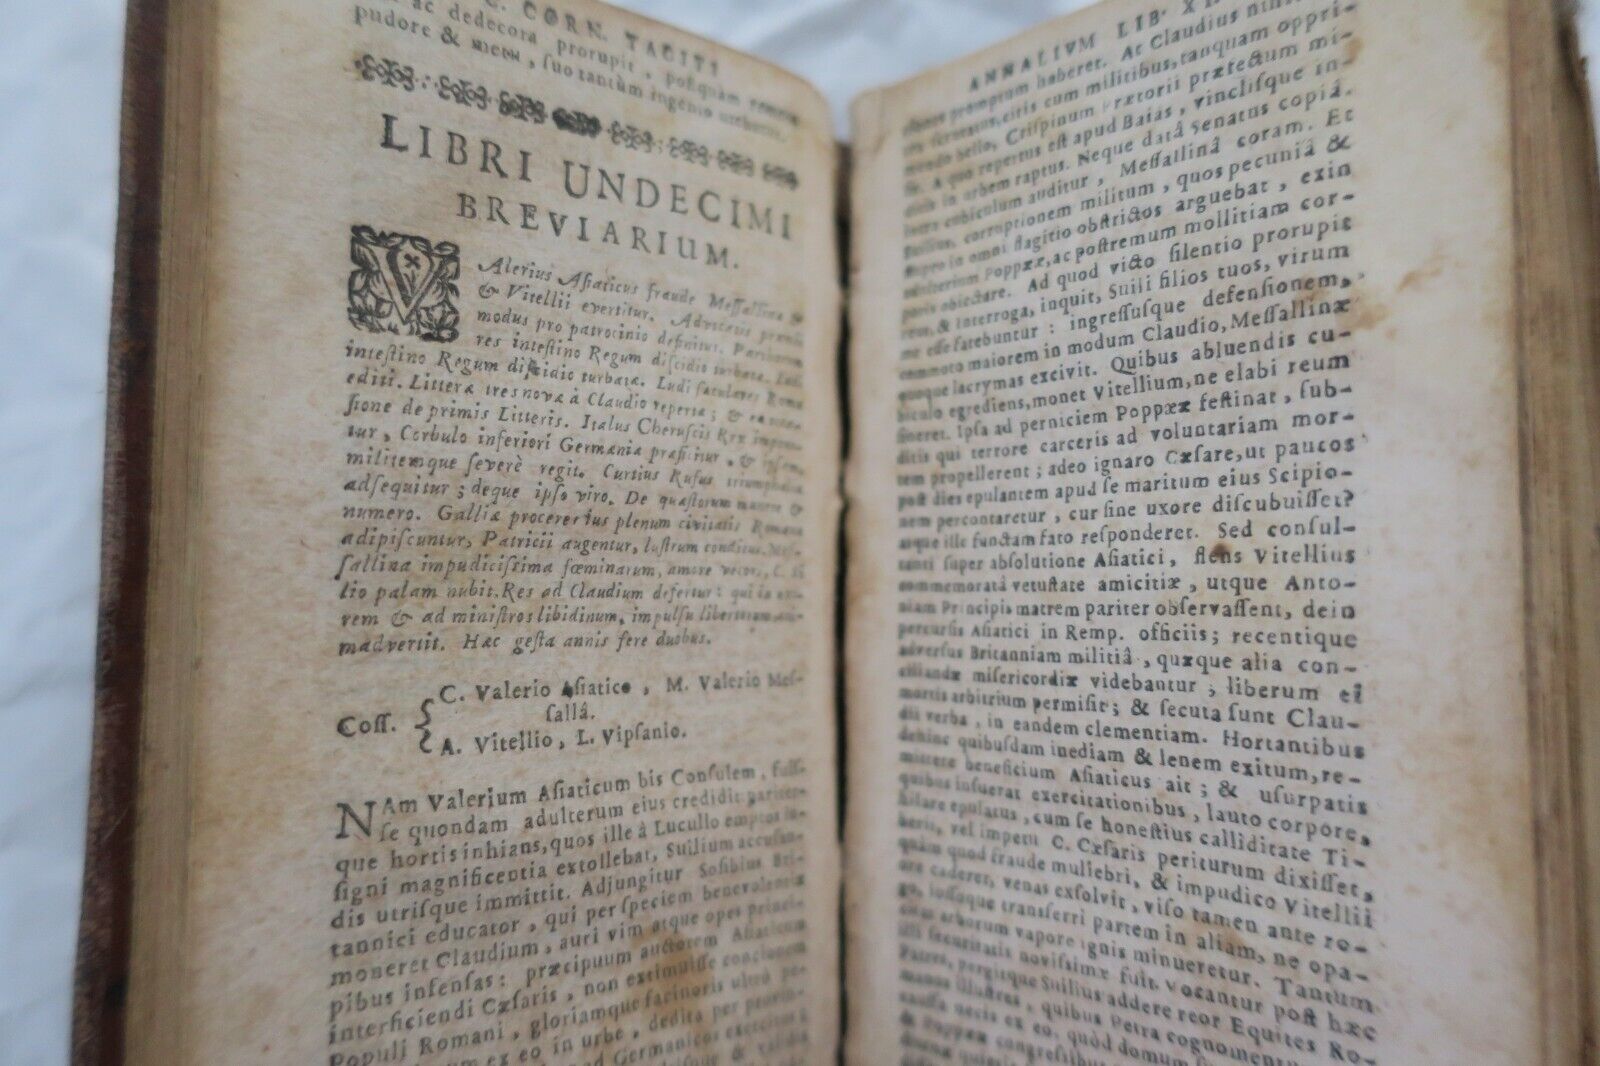 C. CORN. TACITI
ac dedecora prorupit, postquam remoto
pudore & metu, suo tantùm ingenio utebatur.
LIBRI UNDECIMI
BREVIARIUM.
VAlerius Asiaticus fraude Messallinæ &
& Vitellii evertitur. Advocatis præmii
modus pro patrocinio definitur. Partho
res intestino Regum discidio turbatæ. Lu
intestino Regum discidio turbatæ. Ludi sæculares Romæ
editi. Litteræ tres novæ à Claudio repertæ; &
sione de primis Litteris. Italus Cheruscis Rex impo
tur, Corbulo inferiori Germaniæ præficitur, &
militemque severè regit. Curtius Rufus triumphalia
adsequitur; deque ipso viro. De quæstorum munere &
numero. Galliæ procererius plenum civitatis Romanæ
adipiscuntur, Patricii augentur, lustrum conditur. Mes-
sallina impudicissima fœminarum, amore C. Si
lio palam nubit. Res ad Claudium defertur: qui in
rem & ad ministros libidinum, impulsu libertorum ani-
madvertit. Hæc gesta annis fere duobus.
Coss. { C. Valerio Asiatico, M. Valerio Mes-
sallâ.
A. Vitellio, L. Vipsanio.
NAm Valerium Asiaticum bis Consulem, fuis-
se quondam adulterum eius credidit pariter-
que hortis inhians, quos ille à Lucullo emptos in-
signi magnificentia extollebat, Suilium accusan-
dis utrisque immittit. Adjungitur Sosibius Bri-
tannici educator, qui per speciem benevolentiæ
moneret Claudium, auri vim atque opes princi-
pibus infensas: præcipuum auctorem Asiaticum
interficiendi Cæsaris, non extimuisse concionem
Populi Romani, gloriamque facinoris ultrò pe-
ex eo in urbe, dedita per provin-
ad Germanicos exercitus
& valida
ANNALIUM LIB. XI.
promptum haberet. At Claudius nihil
scrutatus, citis cum militibus, tanquam oppri-
mendo bello, Crispinum Prætorii præfectum mi-
sit. A quo repertus est apud Baias, vinclisque in-
ditis in urbem raptus. Neque datâ Senatus copiâ.
intra cubiculum auditur, Messallinâ coram. Et
Suilius, corruptionem militum, quos pecuniâ &
stupro in omni flagitio obstrictos arguebat, exin
adulterium Poppææ, ac postremum mollitiam cor-
poris obiectare. Ad quod victo silentio prorupit
reus, & Interroga, inquit, Suili filios tuos, virum
me esse fatebuntur: ingressusque defensionem,
commoto maiorem in modum Claudio, Messallinæ
quoque lacrymas excivit. Quibus abluendis cu-
biculo egrediens, monet Vitellium, ne elabi reum
sineret. Ipsa ad perniciem Poppææ festinat, sub-
ditis qui terrore carceris ad voluntariam mor-
tem propellerent; adeo ignaro Cæsare, ut paucos
post dies epulantem apud se maritum eius Scipio-
nem percontaretur, cur sine uxore discubuisset?
atque ille functam fato responderet. Sed consul-
tanti super absolutione Asiatici, flens Vitellius
commemoratâ vetustate amicitiæ, utque Anto-
niam Principis matrem pariter observassent, dein
percursis Asiatici in Remp. officiis; recentique
adversus Britanniam militiâ, quæque alia con-
ciliandæ misericordiæ videbantur; liberum ei
mortis arbitrium permisit; & secuta sunt Clau-
dii verba, in eandem clementiam. Hortantibus
dehinc quibusdam inediam & lenem exitum, re-
mittere beneficium Asiaticus ait; & usurpatis
quibus insuerat exercitationibus, lauto corpore,
hilare epulatus, cum se honestius calliditate Ti-
berii, vel impetu C. Cæsaris periturum dixisset,
quàm quod fraude muliebri, & impudico Vitellii
ore caderet, venas exsolvit, viso tamen ante ro-
go, iussoque transferri partem in aliam, ne opa-
citas arborum vapore ignis minueretur. Tantum
illi securitatis novissimæ fuit. Vocantur post hæc
Patres, pergitque Suilius addere reos Equites Ro-
manos illustres, quibus Petra cognomentum
caussa necis ex eo, quòd domum suam
& Poppææ congressibus